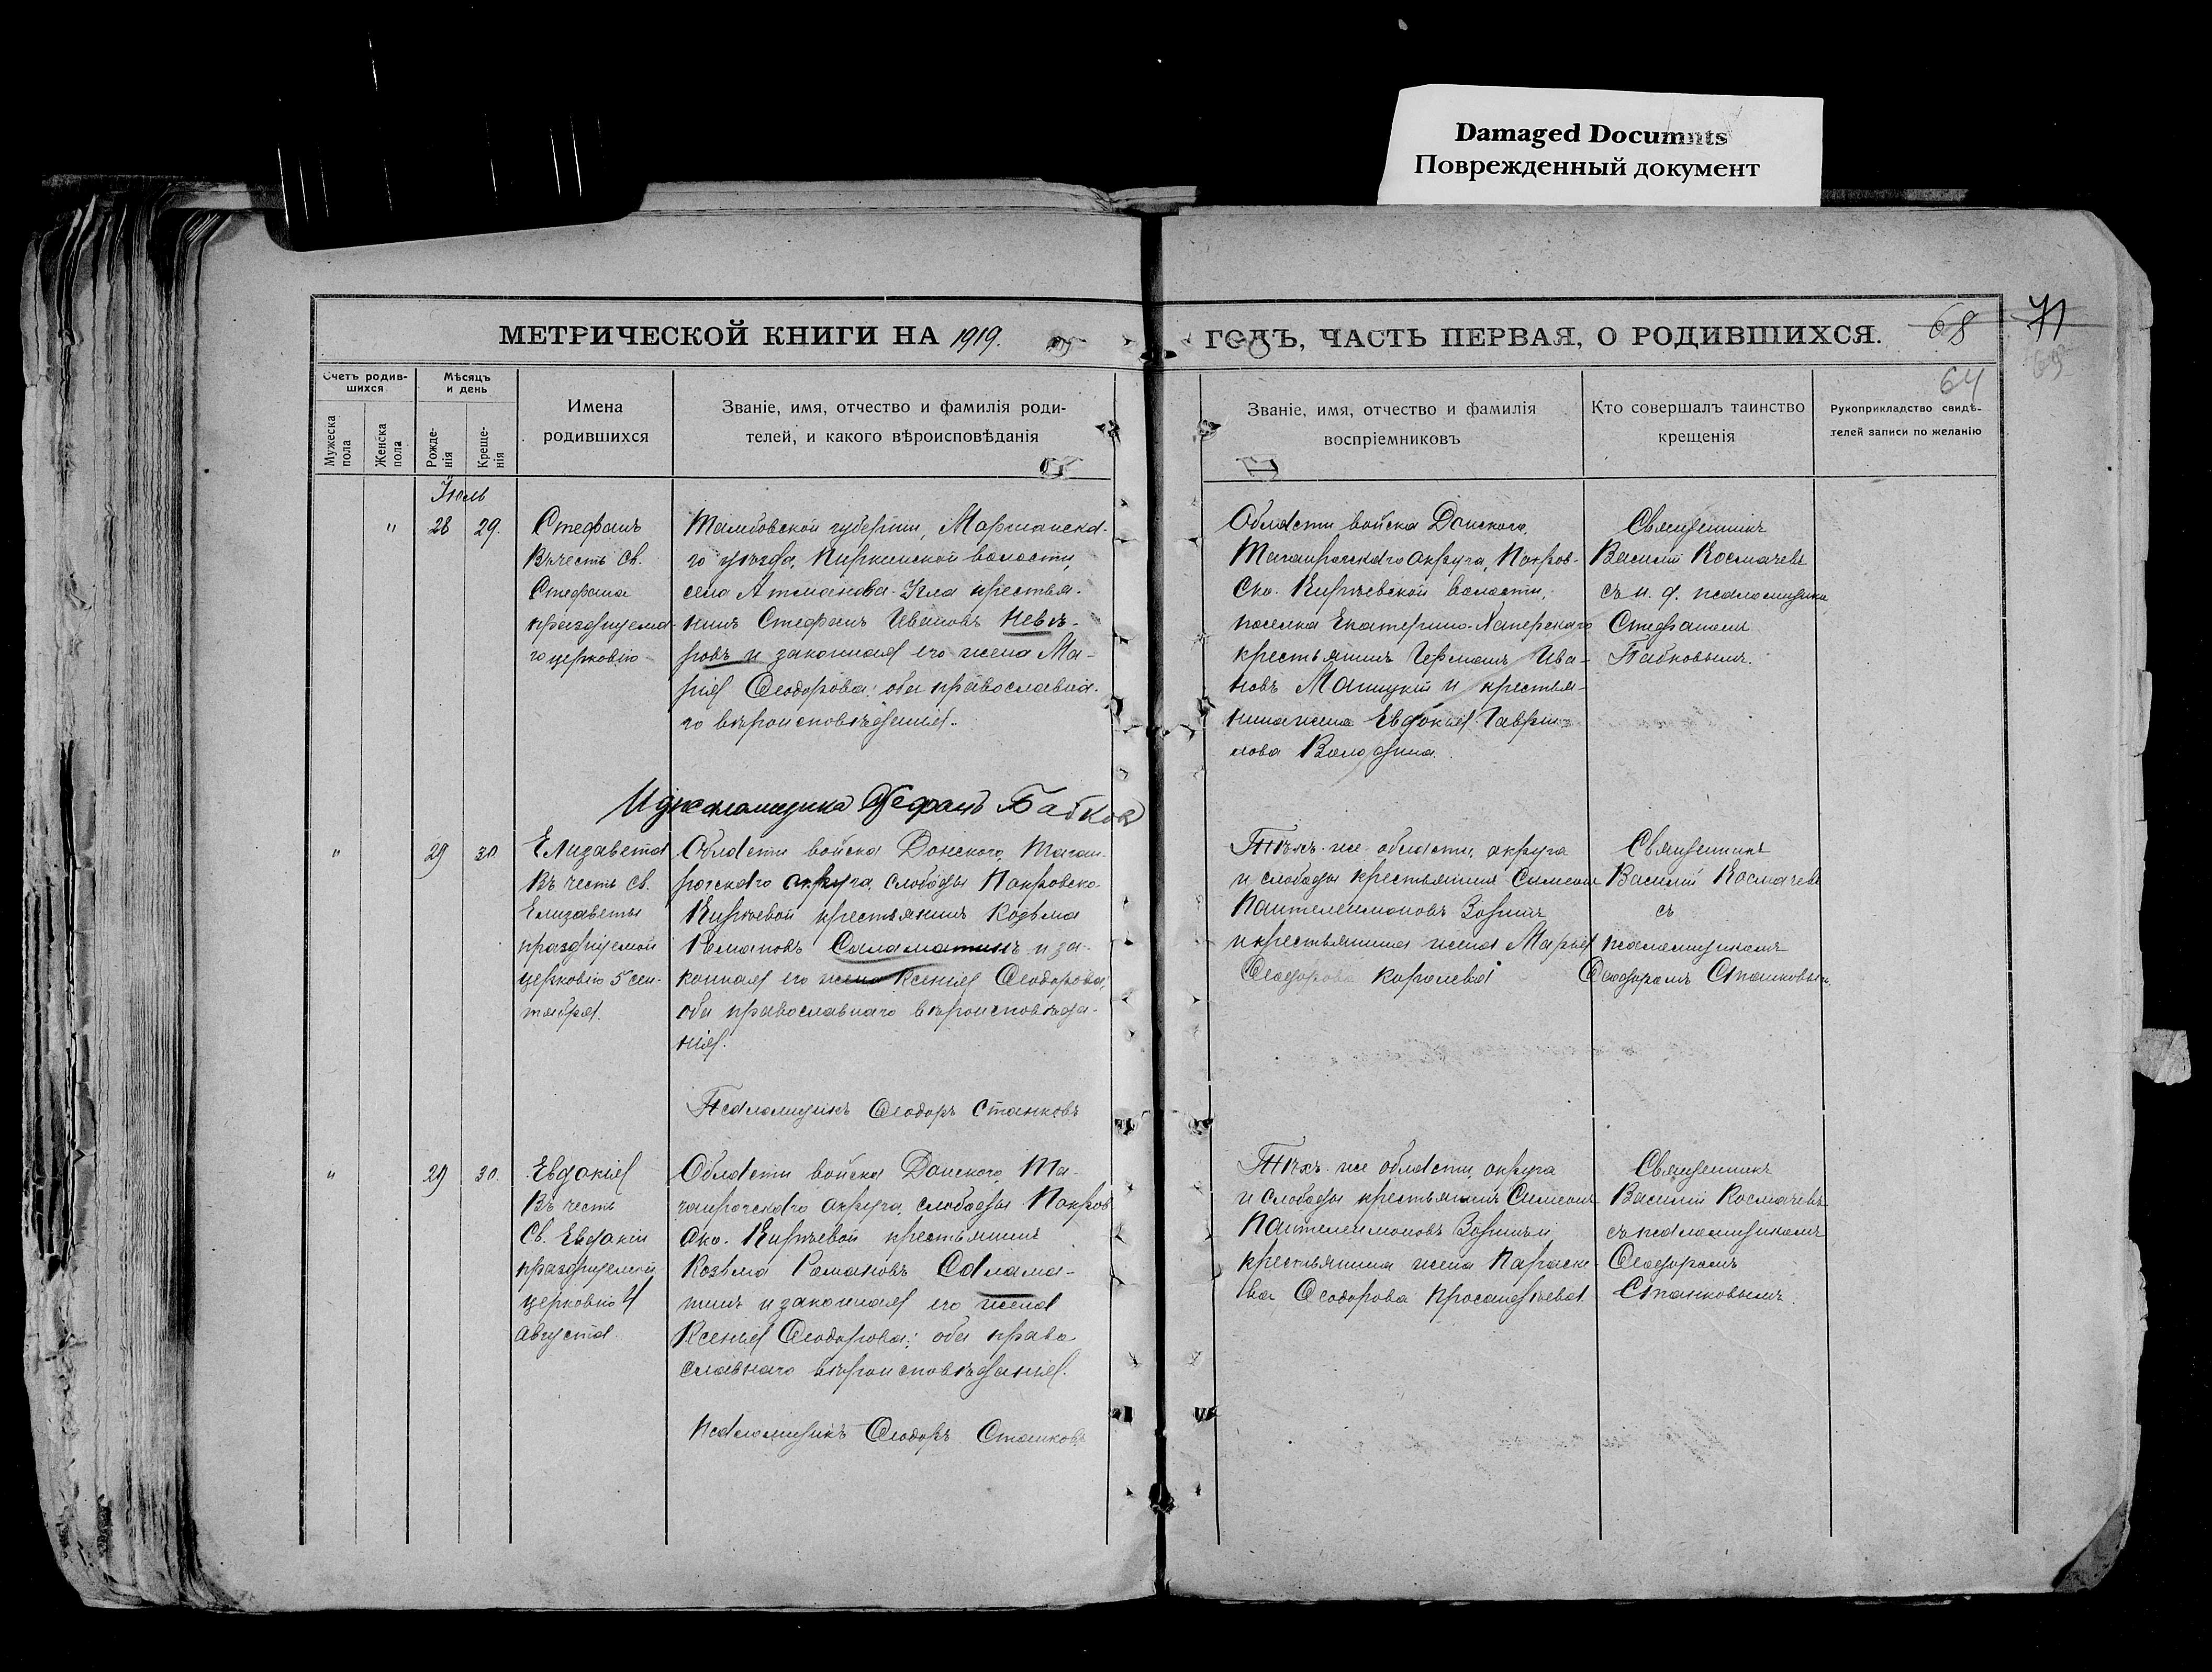 Damaged Documnts
Поврежденный документ
МЕТРИЧЕСКОЙ КНИГИ НА 1919.
ГОДЪ, ЧАСТЬ ПЕРВАЯ, О РОДИВШИХСЯ.
68
71
64
69
Счетъ родив-
шихся
Мужеска
пола
Женска
пола
Мѣсяцъ
и день
Рожде-
нія
Креще-
нія
Имена
родившихся
Званіе, имя, отчество и фамилія роди-
телей, и какого вѣроисповѣданія
Званіе, имя, отчество и фамилія
воспріемниковъ
Кто совершалъ таинство
крещенія
Рукоприкладство свидѣ-
телей записи по желанію
Іюль
"
28
29.
Стефанъ
Въ честь св.
Стефана
празднуема-
го церковію
Тамбовской губерніи, Моршанска-
го уѣзда, волости,
села Атманова-Угла крестья-
нинъ Стефанъ Ивановъ Невѣ-
ровъ и законная его жена Ма-
рія Ѳеодорова; оба православна-
го вѣроисповѣданія.
Области войска Донского,
Таганрогскаго округа, Покров-
ско-Кирѣевской волости,
поселка Екатерино-Хаперскаго
крестьянинъ Германъ Ива-
новъ и крестья-
нина жена Евдокія Гаври-
лова Володина.
Священникъ
Василій Космачевъ
съ и. д. псаломщика
Стефаномъ
Бабковымъ.
И д псаломщика Стефанъ Бабков
"
29
30
Елизавета
Въ честь св.
Елизаветы
празднуемой
церковію 5 сен-
тября.
Области войска Донского, Таган-
рогскаго округа, слободы Покровско-
Кирѣевой крестьянинъ Козьма
Романовъ Саламатинъ и за-
конная его жена Ксенія Ѳеодорова;
оба православнаго вѣроисповѣда-
нія.
Тѣхъ-же области, округа
и слободы крестьянинъ Симеонъ
Пантелеимоновъ Зоринъ
и крестьянина жена Марья
Ѳеодорова Королева
Священникъ
Василій Космачевъ
съ
псаломщикомъ
Ѳеодоромъ Станковымъ.
Псаломщикъ Ѳеодоръ Станковъ
"
29
30.
Евдокія
Въ честь
Св. Евдокіи
празднуемой
церковію 4
августа.
Области войска Донского, Та-
ганрогскаго округа, слободы Покров
ско-Кирѣевой крестьянинъ
Козьма Романовъ Салама-
тинъ и законная его жена
Ксенія Ѳеодорова; оба право-
славнаго вѣроисповѣданія.
Тѣхъ-же области, округа
и слободы крестьянинъ Симеонъ
Пантелеимоновъ Зоринъ и
крестьянина жена Параске
ва Ѳеодорова
Священникъ
Василій Космачевъ
съ псаломщикомъ
Ѳеодоромъ
Станковымъ.
Псаломщикъ Ѳеодоръ Станковъ